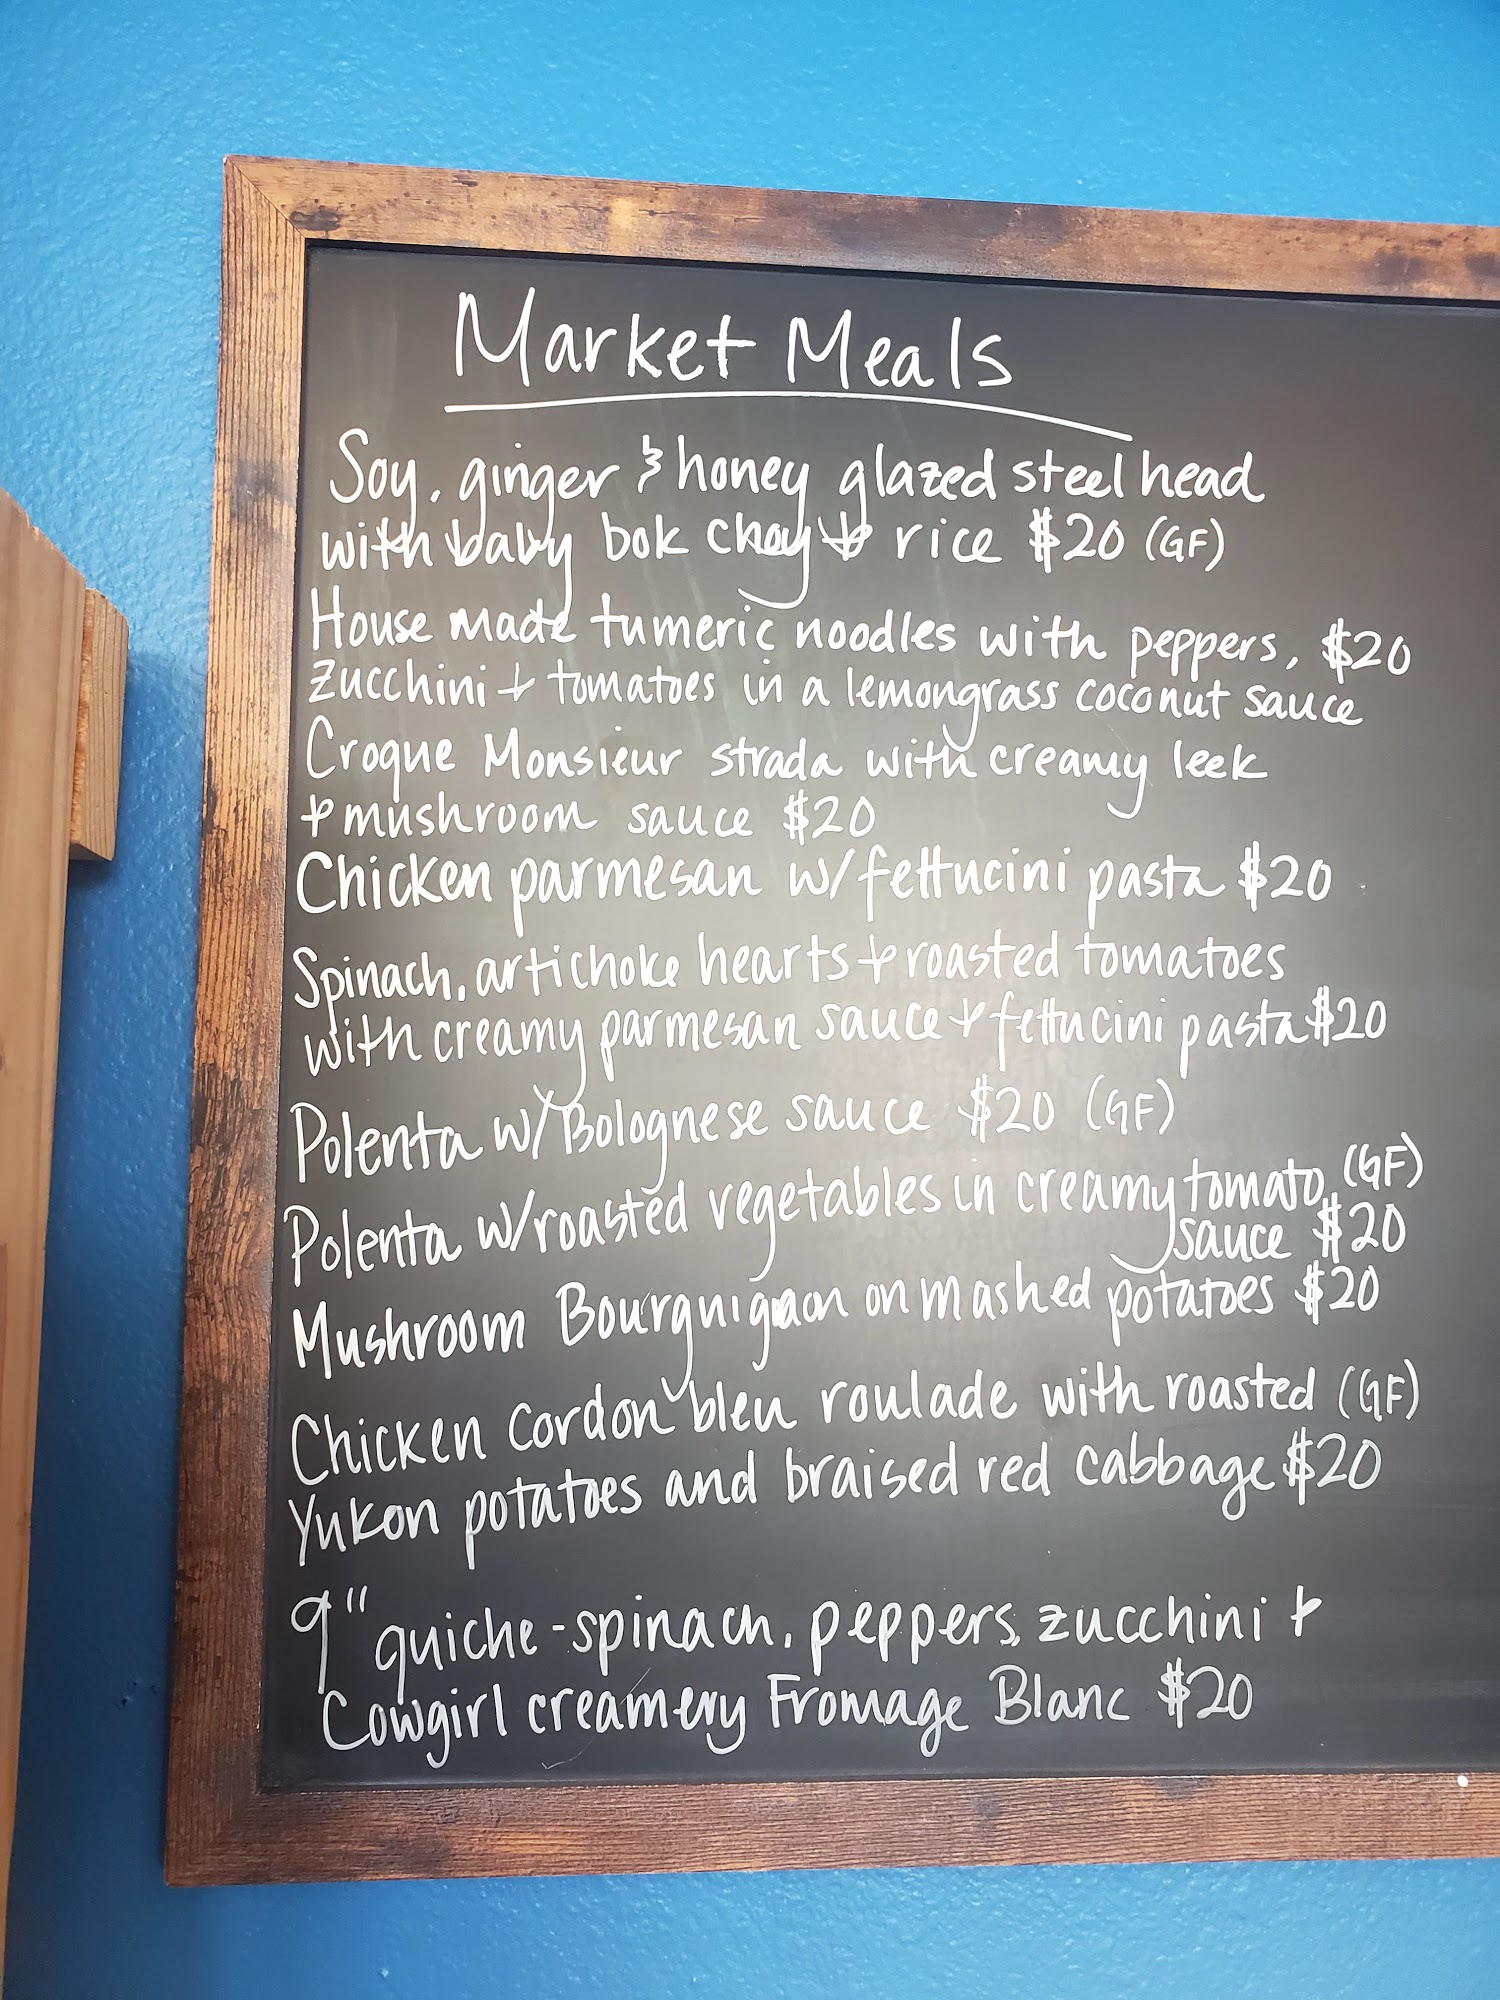 Market Meals
Soy, ginger & honey glazed steelhead
with baby bok choy + rice $20 (GF)
House made tumeric noodles with peppers, $20
zucchini + tomatoes in a lemongrass coconut sauce
Croque Monsieur strada with creamy leek
+ mushroom sauce $20
Chicken parmesan w/ fettucini pasta $20
Spinach, artichoke hearts + roasted tomatoes
with creamy parmesan sauce + fettucini pasta $20
Polenta w/ Bolognese sauce $20 (GF)
Polenta w/ roasted vegetables in creamy tomato (GF)
sauce $20
Mushroom Bourguignon on mashed potatoes $20
Chicken Cordon bleu roulade with roasted (GF)
Yukon potatoes and braised red cabbage $20
9" quiche - spinach, peppers, zucchini +
Cowgirl creamery Fromage Blanc $20